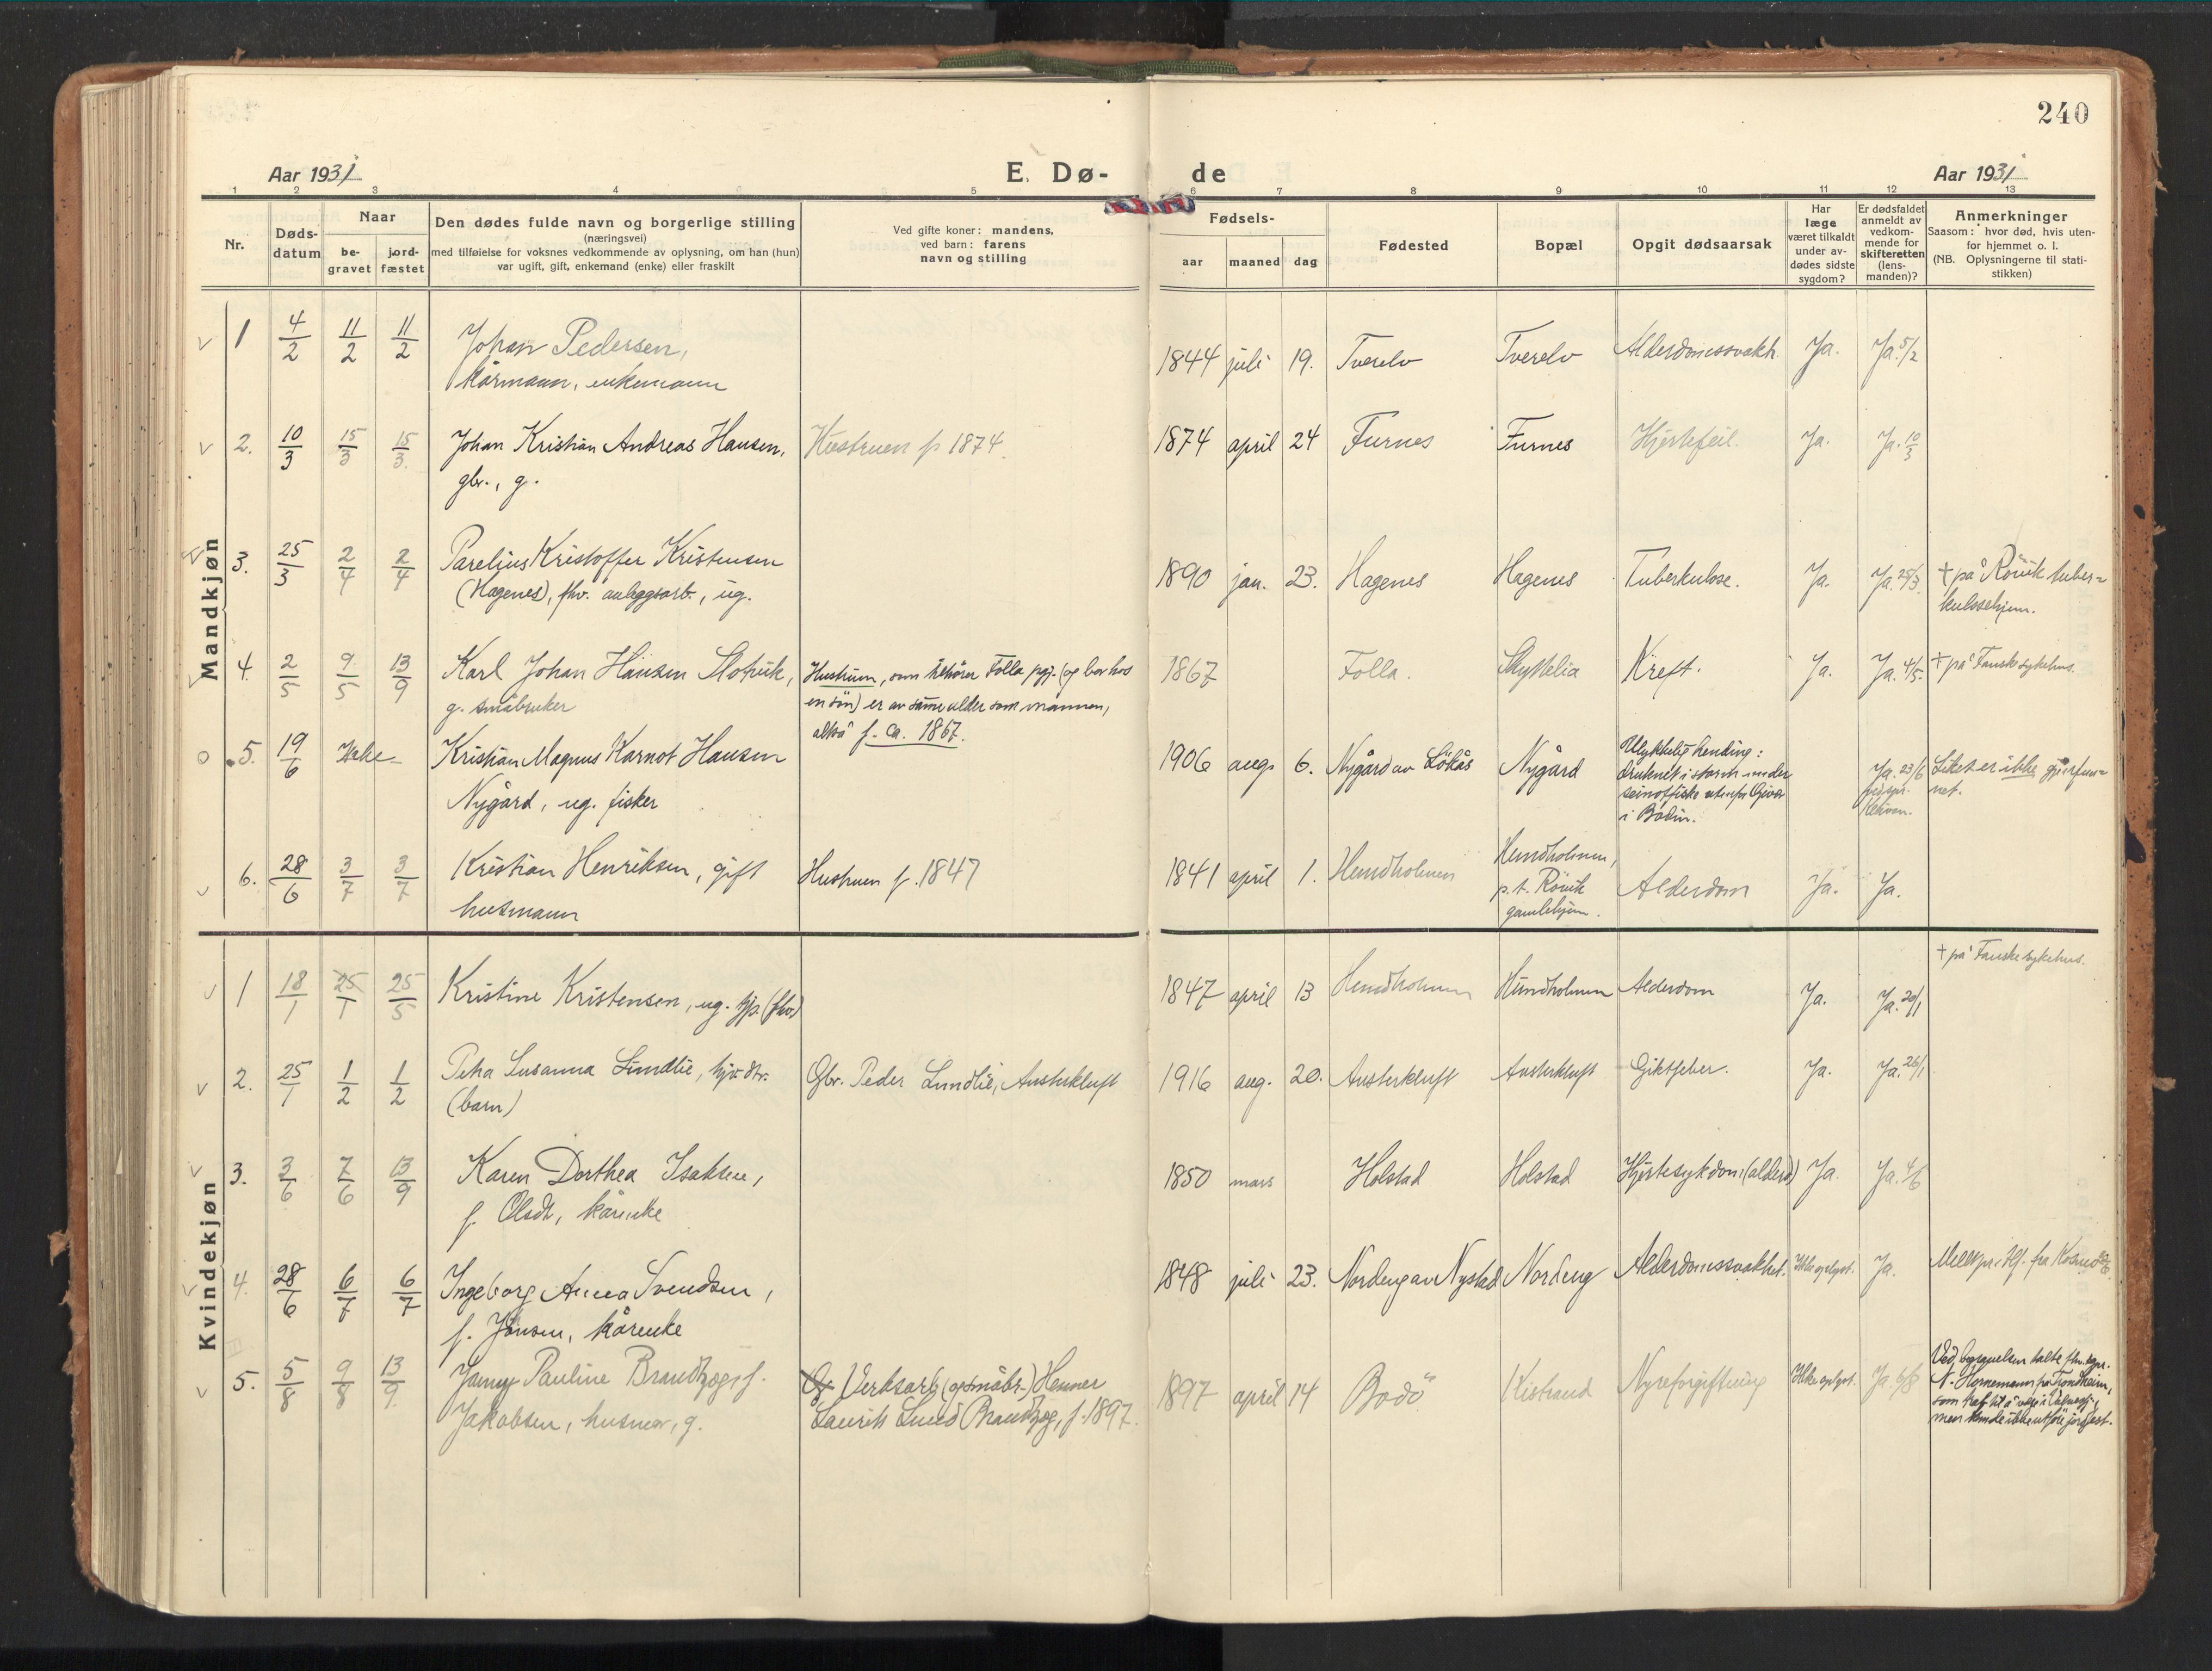 240
Aar 1931
E. Dø-
de
Aar 1931
1 2 3 4 5 6 7 8 9 10 11 12 13
Nr.
Døds-
datum
Naar
be-
gravet
jord-
fæstet
Den dødes fulde navn og borgerlige stilling
(næringsvei)
med tilføielse for voksnes vedkommende av oplysning, om han (hun)
var ugift, gift, enkemand (enke) eller fraskilt
Ved gifte koner: mandens,
ved barn: farens
navn og stilling
Fødsels-
aar maaned dag
Fødested
Bopæl
Opgit dødsaarsak
Har
læge
været tilkaldt
under av-
dødes sidste
sygdom?
Er dødsfaldet
anmeldt av
vedkom-
mende for
skifteretten
(lens-
manden)?
Anmerkninger
Saasom: hvor død, hvis uten-
for hjemmet o. l.
(NB. Oplysningerne til stati-
stikken)
Mandkjøn
1 4/2 11/2 11/2 Johan Pedersen,
kårmann, enkemann
1844 juli 19. Tverelv Tverelv Alderdomssvakh. Ja. Ja. 5/2
2. 10/3 15/3 15/3. Johan Kristian Andreas Hansen,
gbr., g.
Hustruen f. 1874.
1874 april 24 Furnes Furnes Hjertefeil. Ja. Ja. 10/3
3. 25/3 2/4 2/4 Parelius Kristoffer Kristensen
(Hagenes), fhv. anleggsarb., ug.
1890 jan. 23. Hagenes Hagenes Tuberkulose. Ja. Ja. 25/3.
† på Rönvik tuber-
kulosehjem.
4. 2/5 9/5 13/9 Karl Johan Hansen Slotvik,
g. småbruker
Hustruen, som tilhører Folla pgj. (og bor hos
en sön) er av samme alder som mannen,
altså f. ca. 1867.
1867 Folla. Skyttelia Kreft. Ja. Ja. 4/5.
† på Fauske sykehus.
5. 19/6 Kristian Magnus Karnot Hansen
Nygård, ug. fisker
1906 aug. 6. Nygård av Lökås Nygård
Ulykkelig hending:
druknet i storm under
seinotfiske utenfor
i Bodin.
Ja. 23/6
Liket er ikke gjenfun-
net.
6. 28/6 3/7 3/7 Kristian Henriksen, gift
husmann
Hustruen f. 1847
1841 april 1. Hundholmen
Hundholmen,
p.t. Rönvik
gamlehjem.
Alderdom Ja. Ja.
Kvindekjøn
1 18/1 25/1 25/5 Kristine Kristensen, ug. hjp. (fhv.)
1847 april 13 Hundholmen Hundholmen Alderdom Ja. Ja. 20/1
† på Fauske sykehus.
2. 25/1 1/2 1/2 Petra Susanna Lundlie, hjv. dtr.
(barn)
Gbr. Peder Lundlie, Austerkluft
1916 aug. 20. Austerkluft Austerkluft Giktfeber. Ja. Ja. 26/1
3. 3/6 7/6 13/9 Karen Dorthea Isaksen,
f. Olsdt, kårenke
1850 mars Holstad Holstad Hjertesykdom (alderd) Ja. Ja. 4/6
4. 28/6 6/7 6/7 Ingeborg Anna Svendsen,
f. Jönsen, kårenke
1848 juli 23. Nordeng av Nystad Nordeng Alderdomssvakhet. Ikke oplyst. Ja.
5. 5/8 9/8 13/9. Jenny Pauline Brandtzæg, f.
Jakobsen, husmor, g.
Verksarb. (og småbr.) Henner
Laurits Brandtzæg, f. 1897.
1897 april 14 Bodö Kistrand Nyreforgiftning Ikke oplyst. Ja. 6/8
Ved begravelsen talte fhv. sgpr.
N. Hornemann fra Trondheim,
men kunde ikke utföre jordfest.